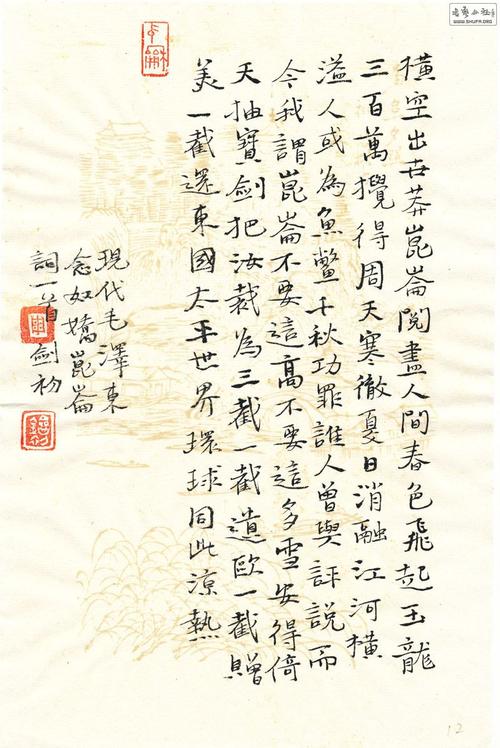 橫空出世莽崑崙閱盡人間春色飛起玉龍
三百萬攪得周天寒徹夏日消融江河橫
溢人或為魚鱉千秋功罪誰人曾與評說而
今我謂崑崙不要這高不要這多雪安得倚
天抽寶劍把汝裁為三截一截遺歐一截贈
美一截還東國太平世界環球同此涼熱
現代毛澤東
念奴嬌崑崙
詞一首 劍初
WWW.SHUFA.ORG
12